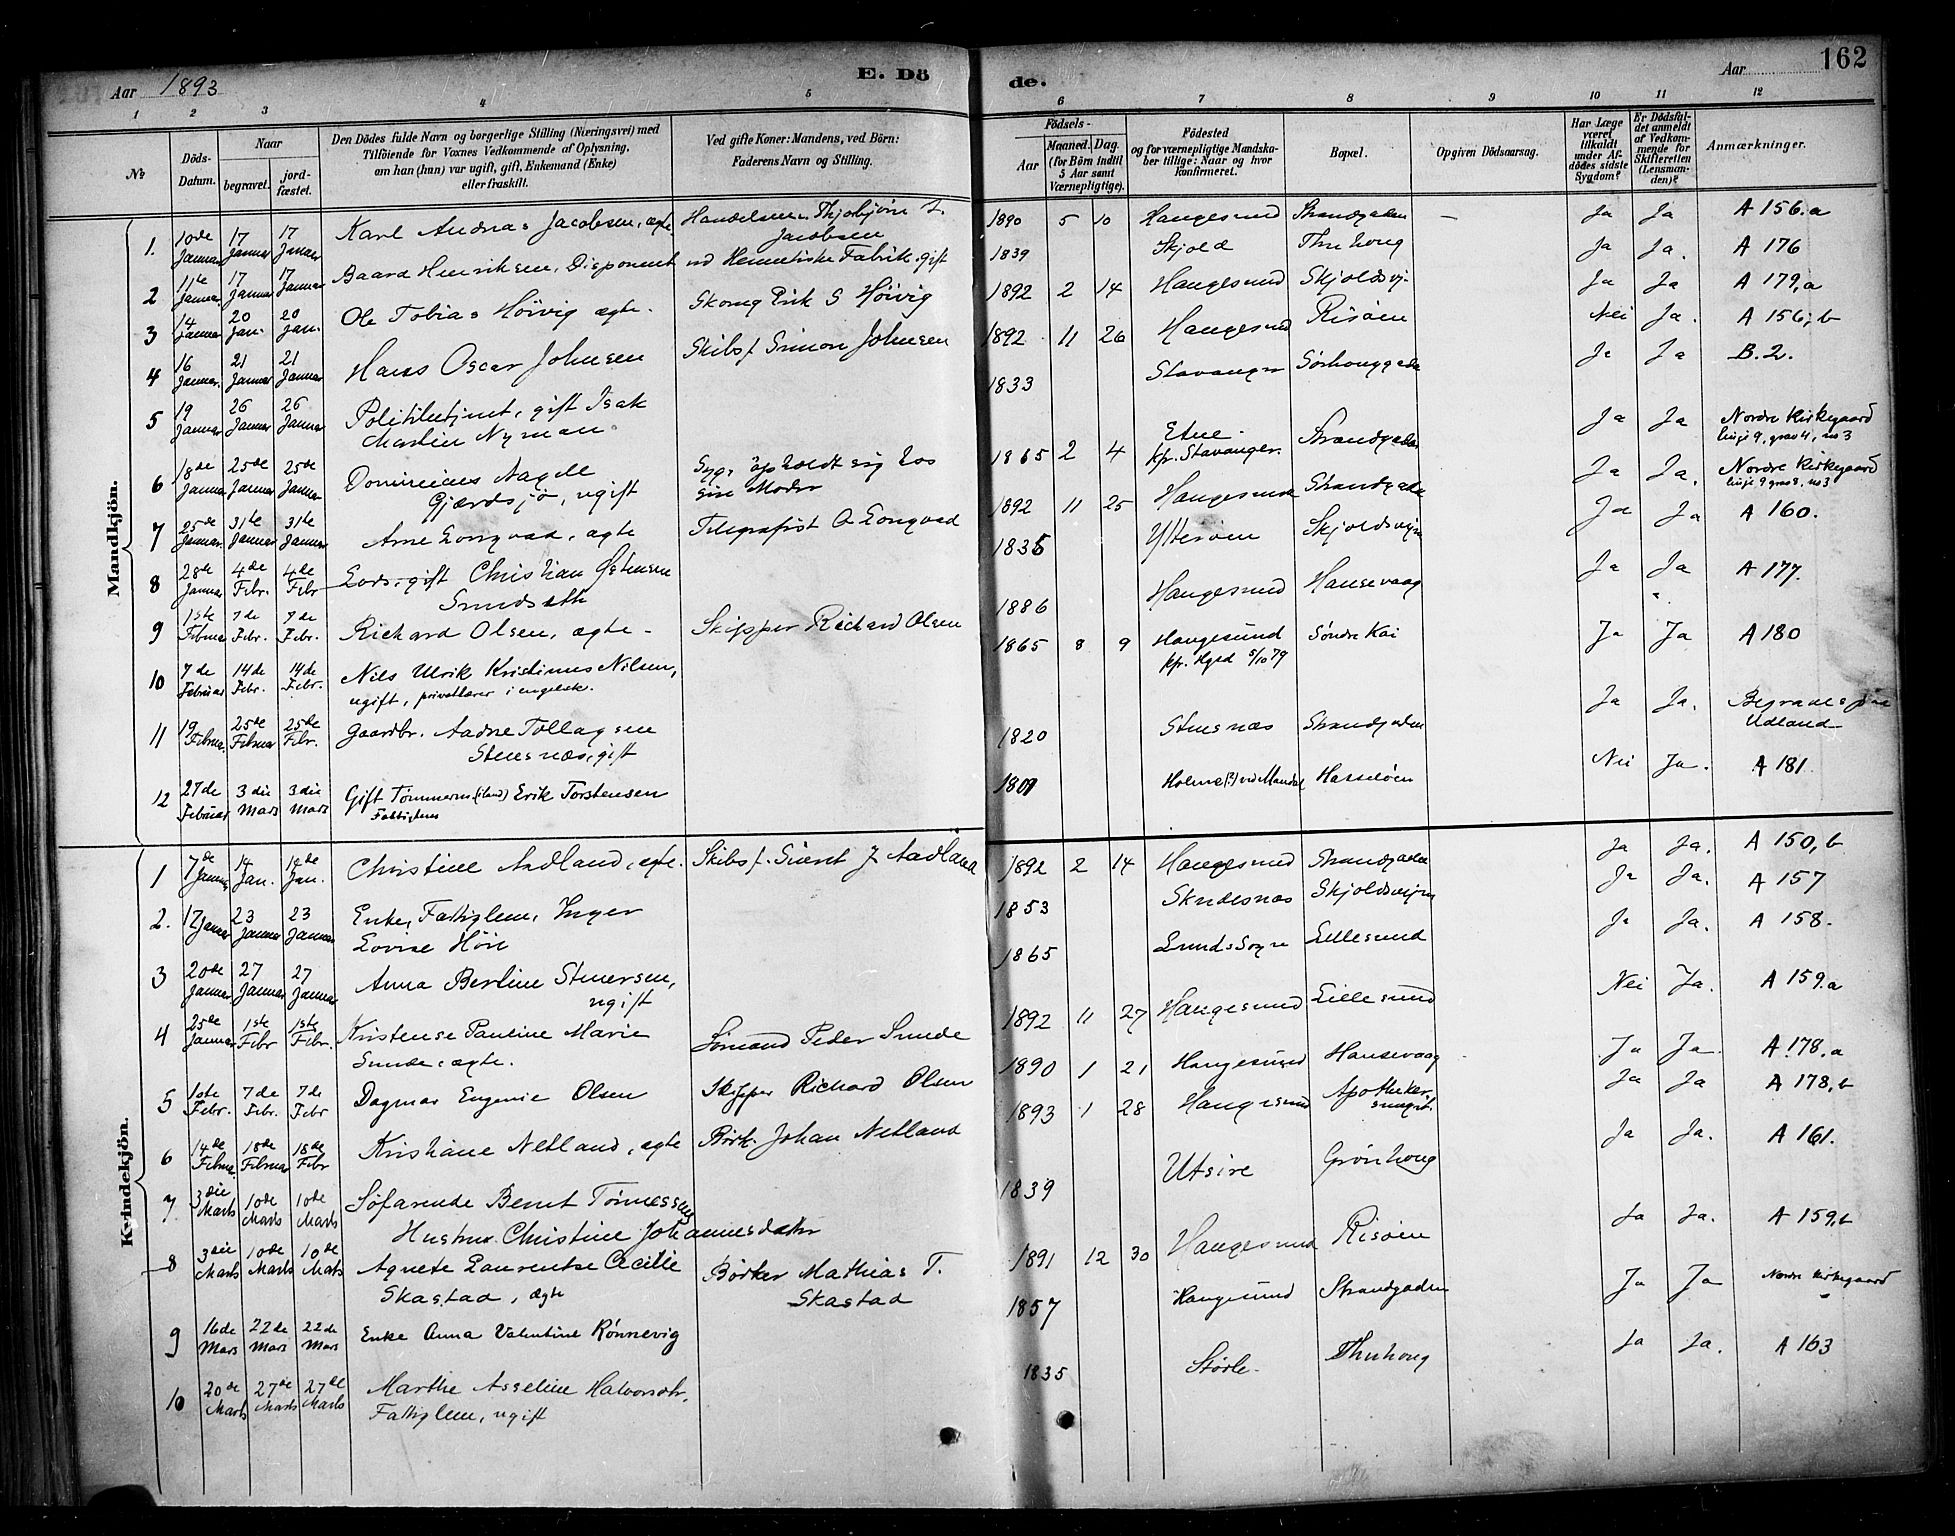 Aar 1893
E. Dö
de.
Aar
162
1 2 3 4 5 6 7 8 9 10 11 12
№
Döds-Datum.
Naar
begravet.
jord-fæstet.
Den Dödes fulde Navn og borgerlige Stilling (Næringsvei) med
Tilföiende for Voxnes Vedkommende af Oplysning,
om han (hun) var ugift, gift, Enkemand (Enke)
eller fraskilt.
Ved gifte Koner: Mandens, ved Börn:
Faderens Navn og Stilling.
Födsels-
Aar
Maaned. Dag.
(for Börn indtil
5 Aar samt
Værnepligtige).
Födested
og for værnepligtige Mandska-
ber tillige: Naar og hvor
konfirmeret.
Bopæl.
Opgiven Dödsaarsag.
Har Læge
været
tilkaldt
under Af-
dödes sidste
Sygdom?
Er Dödsfal-
det anmeldt
af Vedkom-
mende for
Skifteretten
(Lensman-
den)?
Anmærkninger.
Mandkjön.
1. 10de Januar 17 Januar 17 Januar Karl Andreas Jacobsen, ægte Handelsm. Thjobjörn J. Jacobsen 1890 5 10 Haugesund Strandgaden — Ja Ja A 156.a
2 11te Januar 17 Januar 17 Januar Baard Henriksen, Disponent ved Hermetiske Fabrik. gift 1839 Skjold Ja Ja. A 176
3 14 Januar 20 Jan. 20 Jan. Ole Tobias Höivig ægte. Skomg Erik S Höivig 1892 2 14 Haugesund Skjoldsvj. Ja Ja A 179,a
4 16 Januar. 21 Januar 21 Januar Hans Oscar Johnsen Skibsf. Simon Johnsen 1892 11 26 Haugesund Risöen Nei Ja. A 156,b
5 19 Januar 26 Januar 26 Januar Politibetjent, gift Isak Martin Nyman. 1833 Stavanger Sörhauggade Ja Ja B.2.
6 18de Januar 25de Januar 25de Januar Gjærdsjö, ugift Syg, opholdt sig hos sin Moder 1865 2 4 Etne kfr. Stavanger. Strandgaden Ja Ja Nordre Kirkegaard linje 9, grav 4, no 3
7 25de Januar 31te Januar 31te Januar Arne Longvad, ægte Telegrafist O Longvad 1892 11 25 Haugesund Strandgade Ja Ja. Nordre Kirkegaard linje 9 grav 8, no 3
8 28de Januar 4de Febr. 4de Febr Lods, gift Christian Østensen 1835 Ytteröen Skjoldsveien Ja Ja A 160.
9 1ste Februar 7de Febr. 7de Febr. Richard Olsen, ægte - Skipper Richard Olsen 1886 Haugesund Hansevaag Ja Ja A 177.
10 7de Februar 14de Febr. 14de Febr. Nils Ulrik Kristinus Nilsen, ugift, privatlærer i engelsk. 1865 8 9 Haugesund kfr. Hgsd 5/10 79 Söndre Kai Ja Ja A 180
11 19 Februar 25de Februar 25de Febr. Gaardbr. Aadne Tollagsen Stensnæs, gift 1820 Stensnæs Strandgaden Ja Ja. Udland
12 27de Februar 3die Mars 3die Mars Gift Tömmerm. (iland) Erik Torstensen Fattiglem 1801 Holme(?) ved Mandal Hasselöen Nei Ja. A 181.
Kvindekjön.
1 7de Januar 14 Jan. 14de Jan. Christine Aadland, ægte. Skibsf. Sivert J Aadland 1892 2 14 Haugesund Strandgaden Ja Ja. A 150,b
2. 17 Januar 23 Januar 23 Januar Enke, Fattiglem, Inger Lovise Höie 1853 Skudesnæs Skjoldsveien Ja Ja. A 157
3 20de Januar 27 Januar 27 Januar Anna Bertine Stenersen, ugift 1865 Lunds Sogn Lillesund Ja Ja. A 158.
4 25de Januar 1ste Febr 1ste Febr. Kristense Pauline Marie Sunde, ægte. Sömand Peder Sunde 1892 11 27 Haugesund Lillesund Nei Ja. A 159.a
5 1ste Febr. 7de Febr. 7de Febr Dagmar Eugenie Olsen Skipper Richard Olsen 1890 1 21 Haugesund Hansevaag Ja Ja. A 178,a
6 14de Februar. 18de Februar 18de Febr Kristiane Netland, ægte Börk. Johan Netland 1893 1 28 Haugesund Apotheker- Ja Ja A 178,b
7. 3die Marts 10de Marts 10de Marts Söfarende Bernt Tönnessens Hustru Christine Johannesdatter 1839 Utsire Grönhaug Ja Ja. A 161.
8 3die Marts 10de Marts 10de Mats Agnete Laurentse Cecilie Skastad, ægte Börker Mathias T. Skastad 1891 12 30 Haugesund Risöen Ja Ja. A 159,b
9 16de Mars 22de Mars 22de Mars Enke Anna Valentine Rönnevig 1857 Haugesund Strandgaden Ja Ja Nordre Kirkegaard
10 20de Marts 27de Marts 27de Marts Marthe Asseline Halvorsdtr, Fattiglem, ugift 1835 Störle Ja Ja. A 163